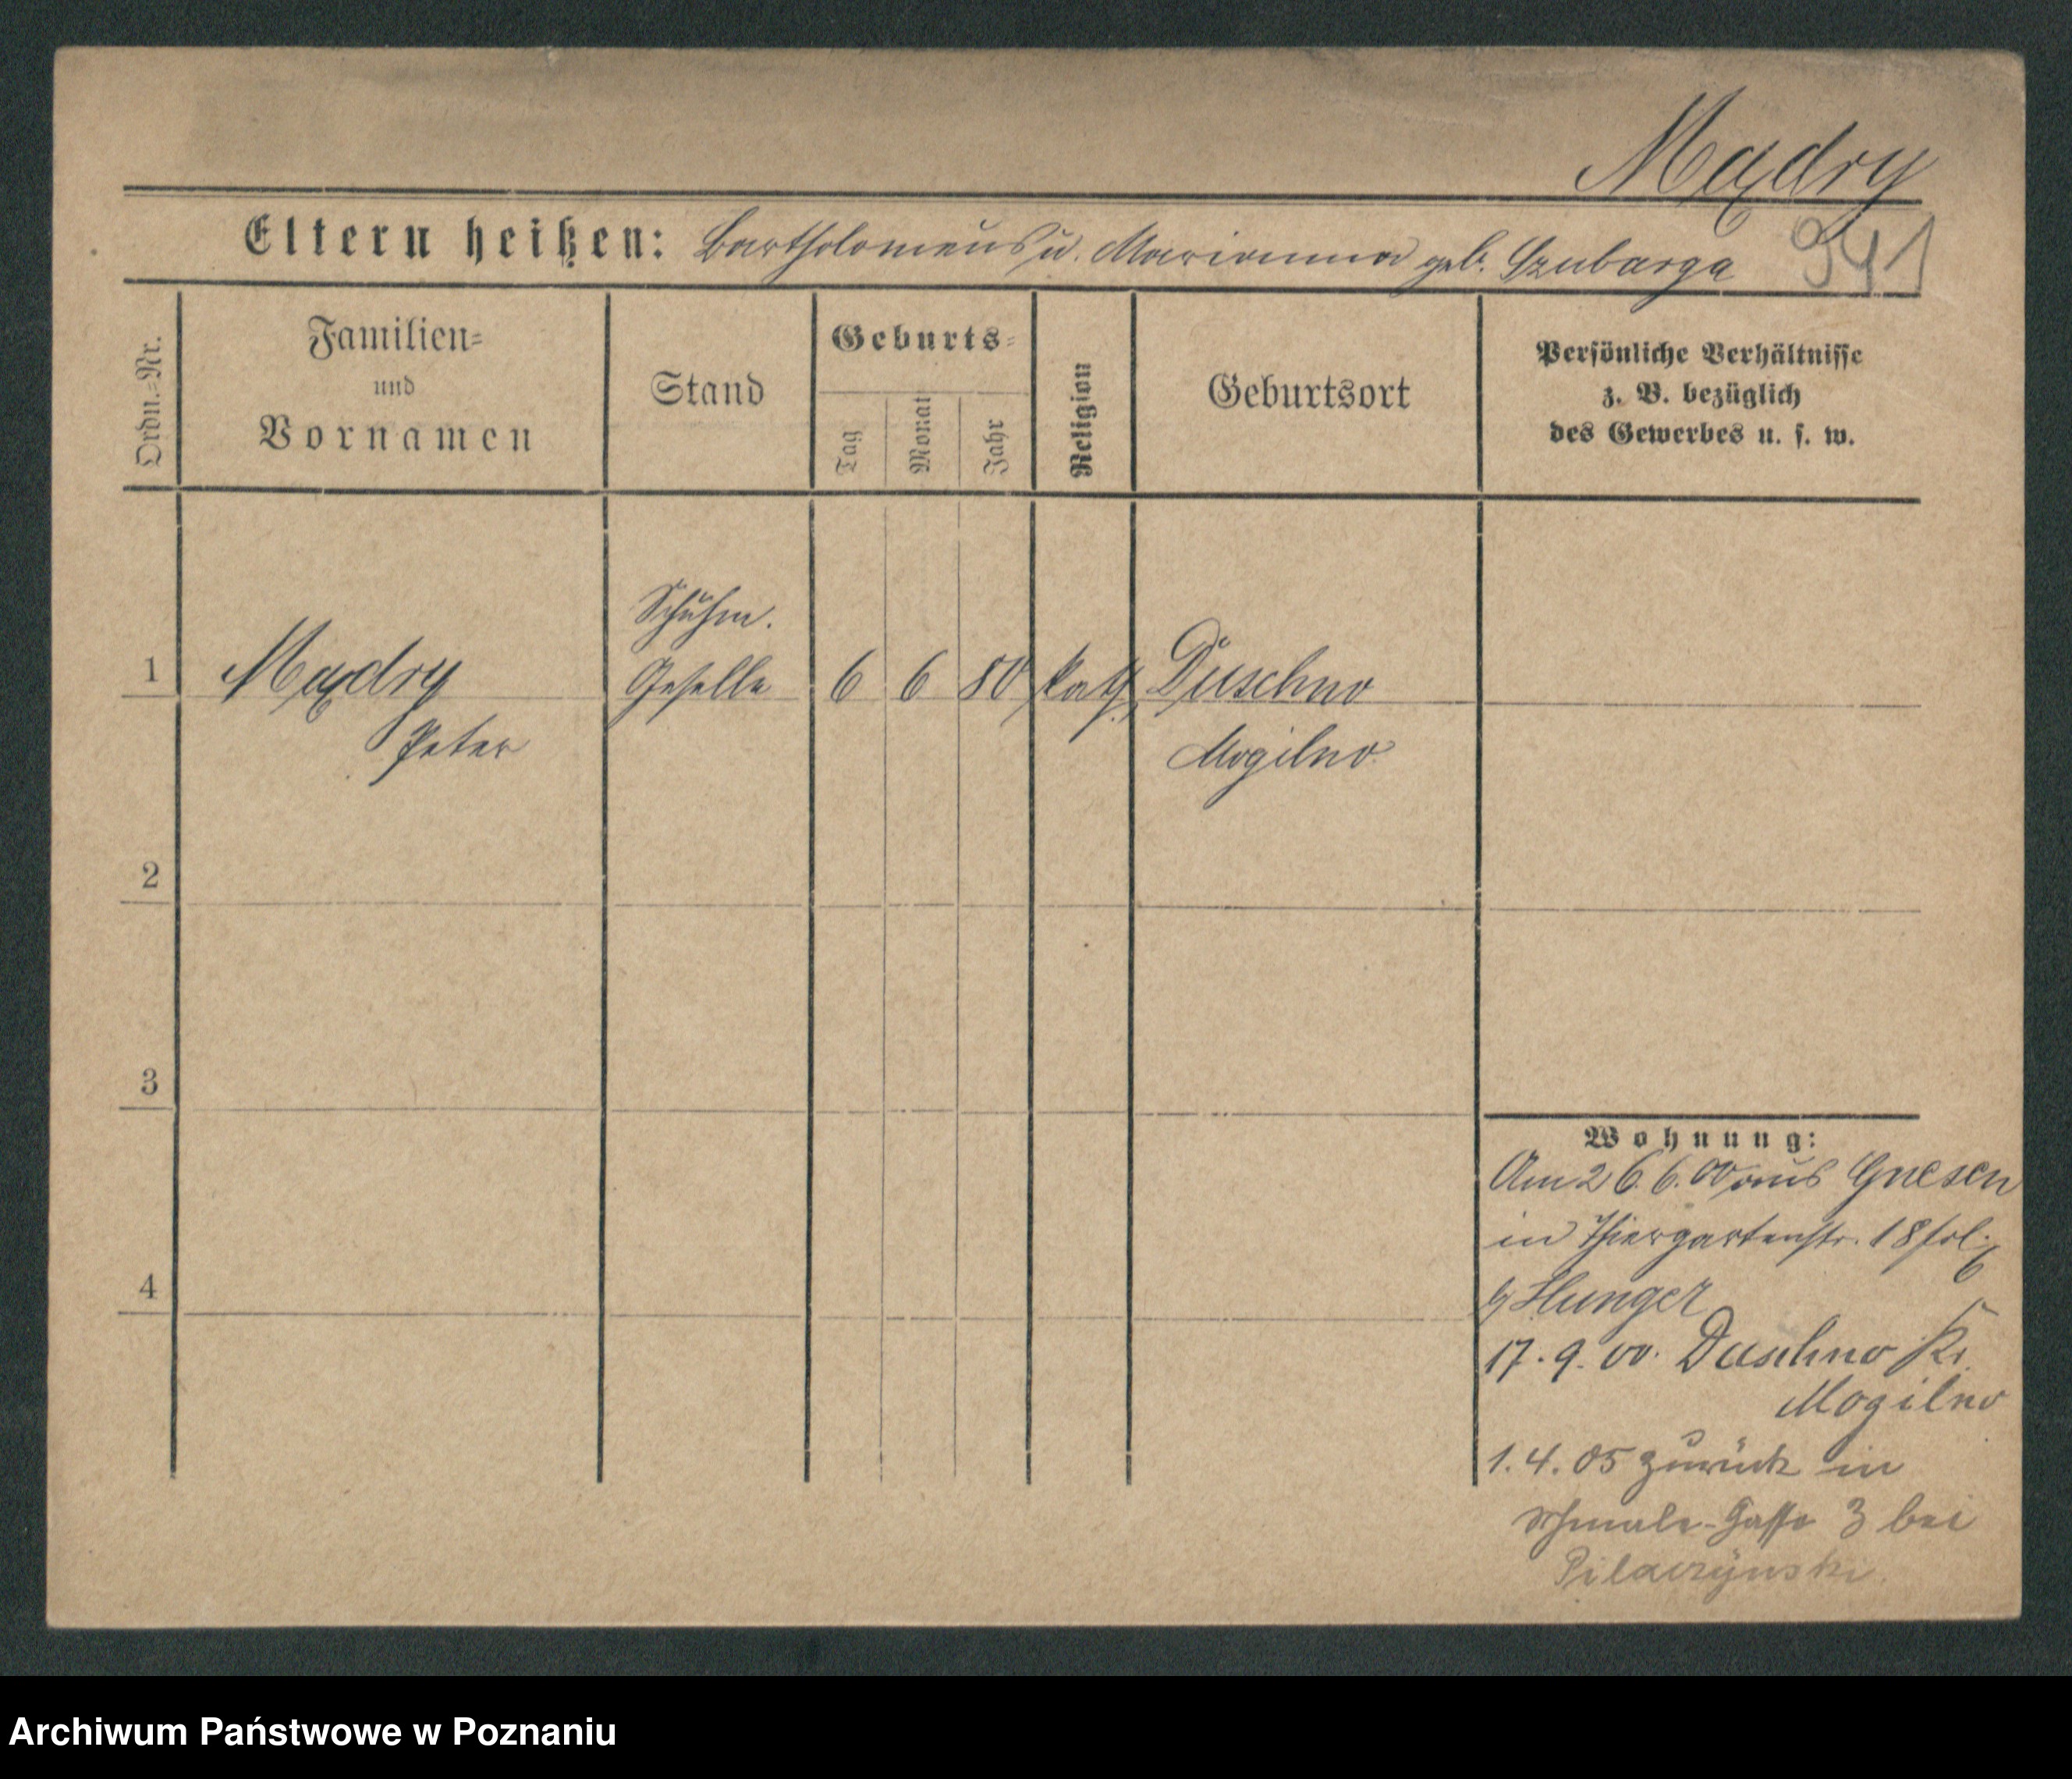 Mądry
Eltern heißen: Bartholomeus u. Marianna geb. Szubarga
941
Ordn.-Nr.
Familien-
und
Vornamen
Stand
Geburts-
Tag
Monat
Jahr
Religion
Geburtsort
Persönliche Verhältnisse
z. B. bezüglich
des Gewerbes u. s. w.
Schuhm.
1 Mądry Geselle 6 6 80 kath. Duschno
Peter Mogilno
2
3
4
Wohnung:
Am 26.6.00 aus Gnesen
in Thiergartenstr. 18
b/ Hunger
17.9.00. Duschno Kr.
Mogilno
1.4.05 zurück in
Schmale-Gasse 3 bei
Pilaczynski.
Archiwum Państwowe w Poznaniu